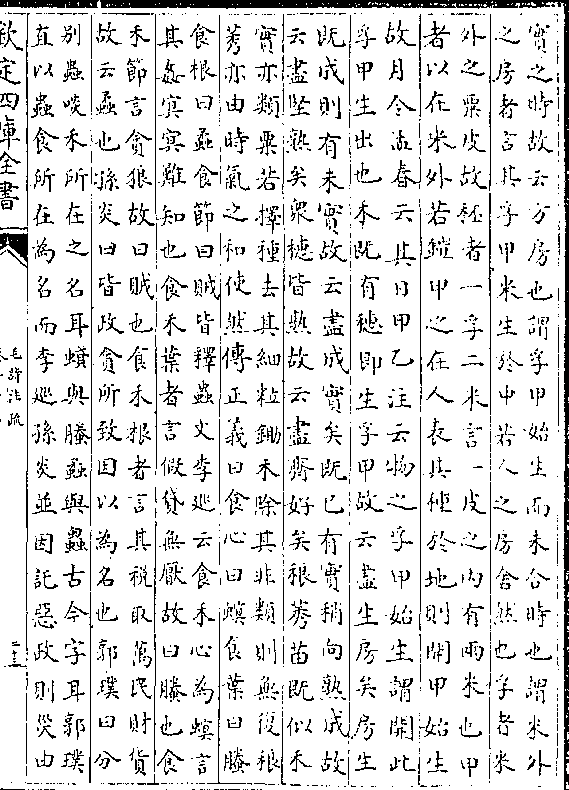 實之時故云方房也謂孚甲始生而未合時也謂米外
之房者言其孚甲米生於中若人之房舍然也孚者米
外之粟皮故秠者一孚二米言一皮之内有兩米也甲
者以在米外若鎧甲之在人表其種於地則開甲始生
故月令孟春云其日甲乙注云物之孚甲始生謂開此
孚甲生出也禾既有穂即生孚甲故云盡生房矣房生
既成則有未實故云盡成實矣既已有實稍向熟成故
云盡堅熟矣衆穂皆熟故云盡齊好矣稂莠苗既似禾
實亦類粟若擇種去其細粒鋤禾除其非類則無復稂
莠亦由時氣之和使然傳正義曰食心曰螟食葉曰螣
食根曰蟊食節曰賊皆釋蟲文李廵云食禾心為螟言
其姦冥冥難知也食禾葉者言假貸無厭故曰螣也食
禾節言貪狼故曰賊也食禾根者言其税取萬民財貨
故云蟊也孫炎曰皆政貪所致因以為名也郭璞曰分
别蟲啖禾所在之名耳蟘與螣蟊與蟲古今字耳郭璞
直以蟲食所在為名而李廵孫炎並因託惡政則災由
欽定四庫全書
毛詩注疏